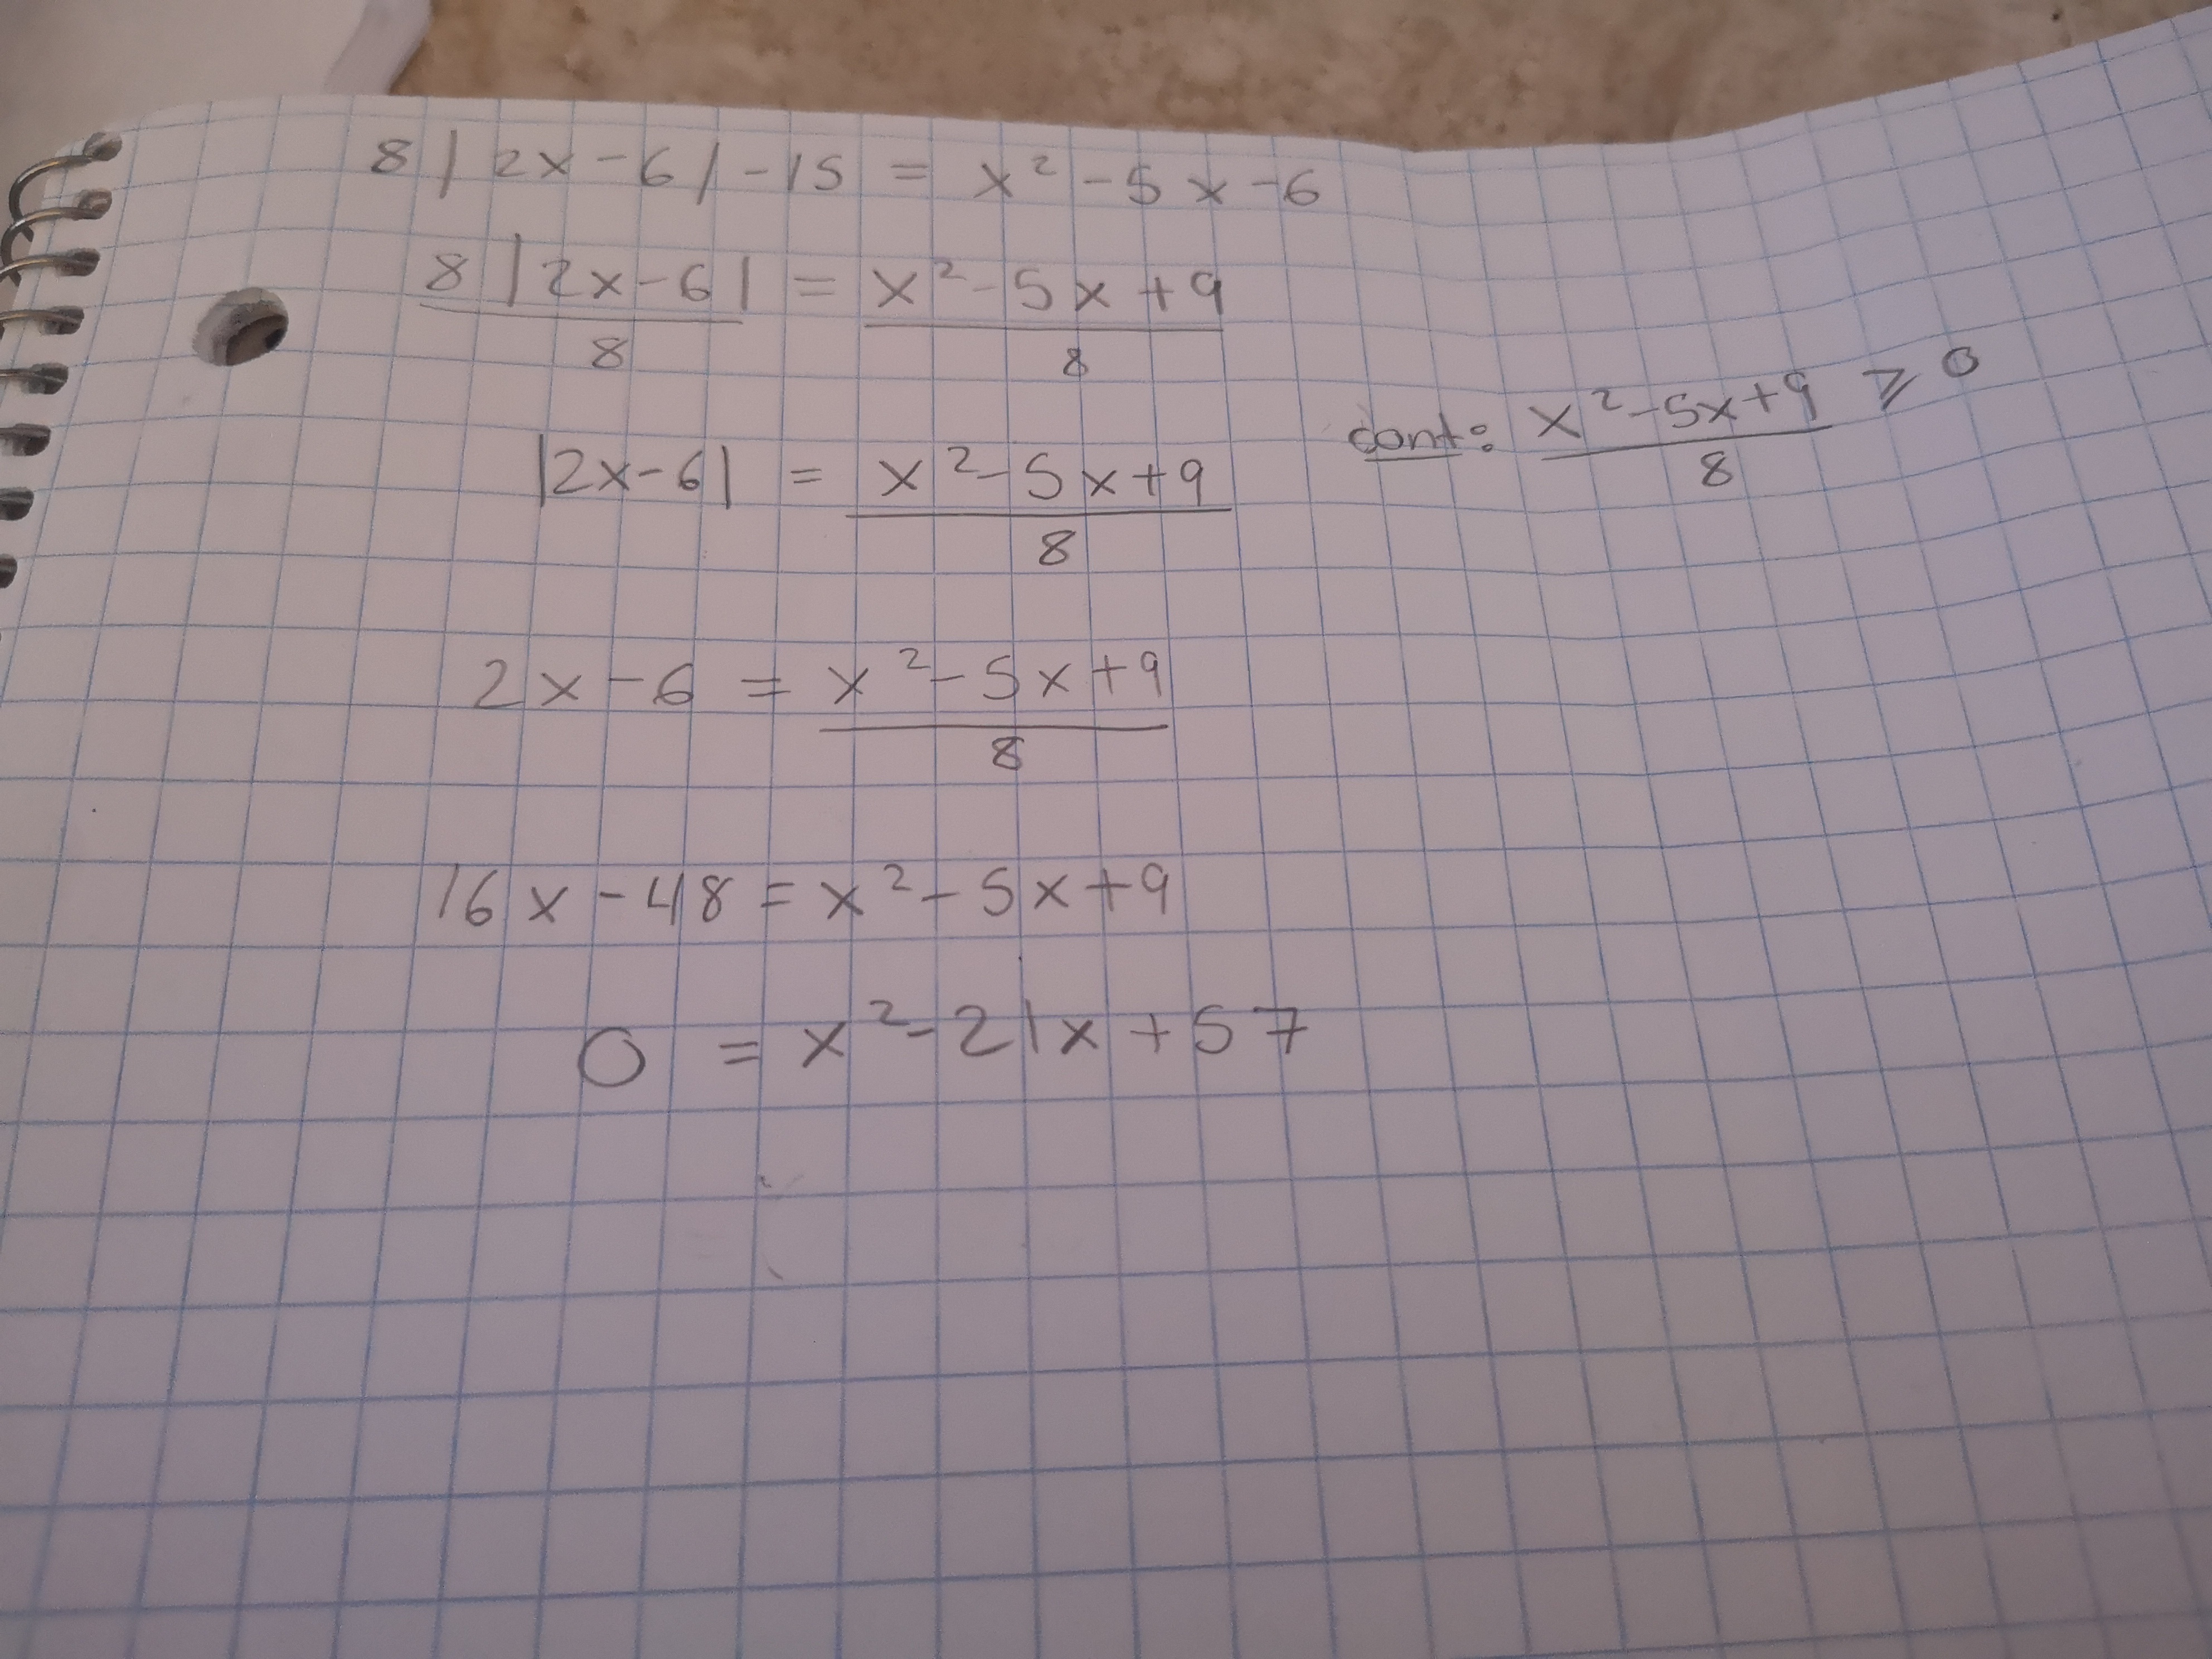 8|2x-6|-15 = x²-5x-6
8|2x-6|/8 = x²-5x+9/8
|2x-6| = x²-5x+9/8
cont: x²-5x+9/8 ≥ 0
2x-6 = x²-5x+9/8
16x-48 = x²-5x+9
0 = x²-21x+57